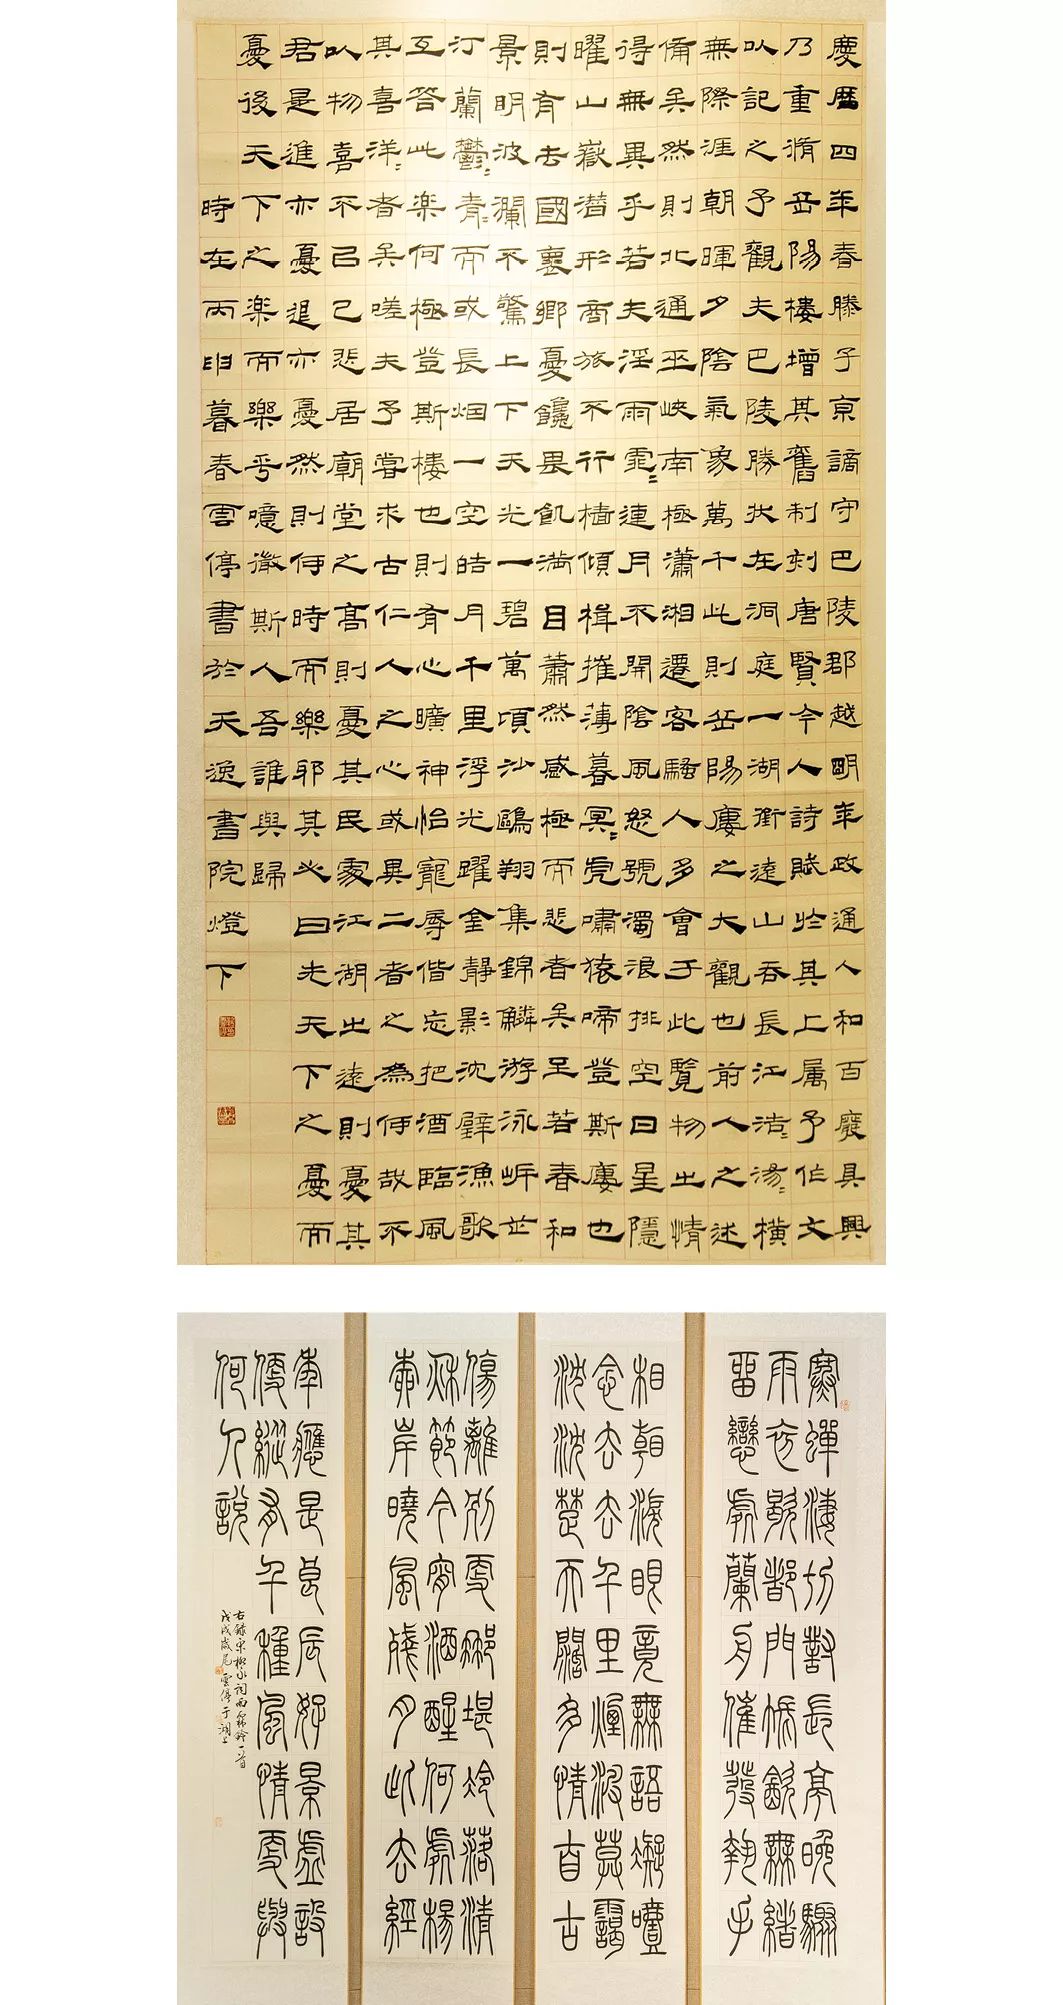 慶曆四年春滕子京謫守巴陵郡越明年政通人和百廢具興
乃重脩岳陽樓增其舊制刻唐賢今人詩賦於其上属予作文
以記之予觀夫巴陵勝狀在洞庭一湖銜遠山吞長江浩〻湯〻橫
無際涯朝暉夕陰氣象萬千此則岳陽廔之大觀也前人之述
備矣然則北通巫峽南極瀟湘遷客騷人多會于此覽物之情
得無異乎若夫淫雨霏〻連月不開陰風怒號濁浪排空日星隱
曜山嶽潜形商旅不行檣傾楫摧薄暮冥〻虎嘯猿啼登斯廔也
則有去國褱鄉憂讒畏飢满目蕭然感極而悲者矣至若春和
景明波瀾不驚上下天光一碧萬頃沙鷗翔集錦鱗游泳岸芷
汀蘭鬱〻青〻而或長烟一空皓月千里浮光躍金靜影沈璧漁歌
互答此楽何極登斯樓也則有心曠神怡寵辱偕忘把酒臨風
其喜洋〻者矣嗟夫予嘗求古仁人之心或異二者之為何哉不
以物喜不已己悲居廟堂之髙則憂其民處江湖之遠則憂其
君是進亦憂退亦憂然則何時而樂邪其必曰先天下之憂而
憂後天下之楽而樂乎噫微斯人吾誰與歸
時在丙申暮春雲停書於天逸書院燈下
寒蟬淒切對長亭晚驟
雨初歇都門帳飲無緒
留戀處蘭舟催發執手
相看淚眼竟無語凝噎
念去去千里煙波暮靄
沈沈楚天闊多情自古
傷離別更那堪冷落清
秋節今宵酒醒何處楊
柳岸曉風殘月此去經
年應是良辰好景虛設
便縱有千種風情更與
何人說
右錄宋柳永詞雨霖鈴一首
戊戌歲尾雲停于湖上